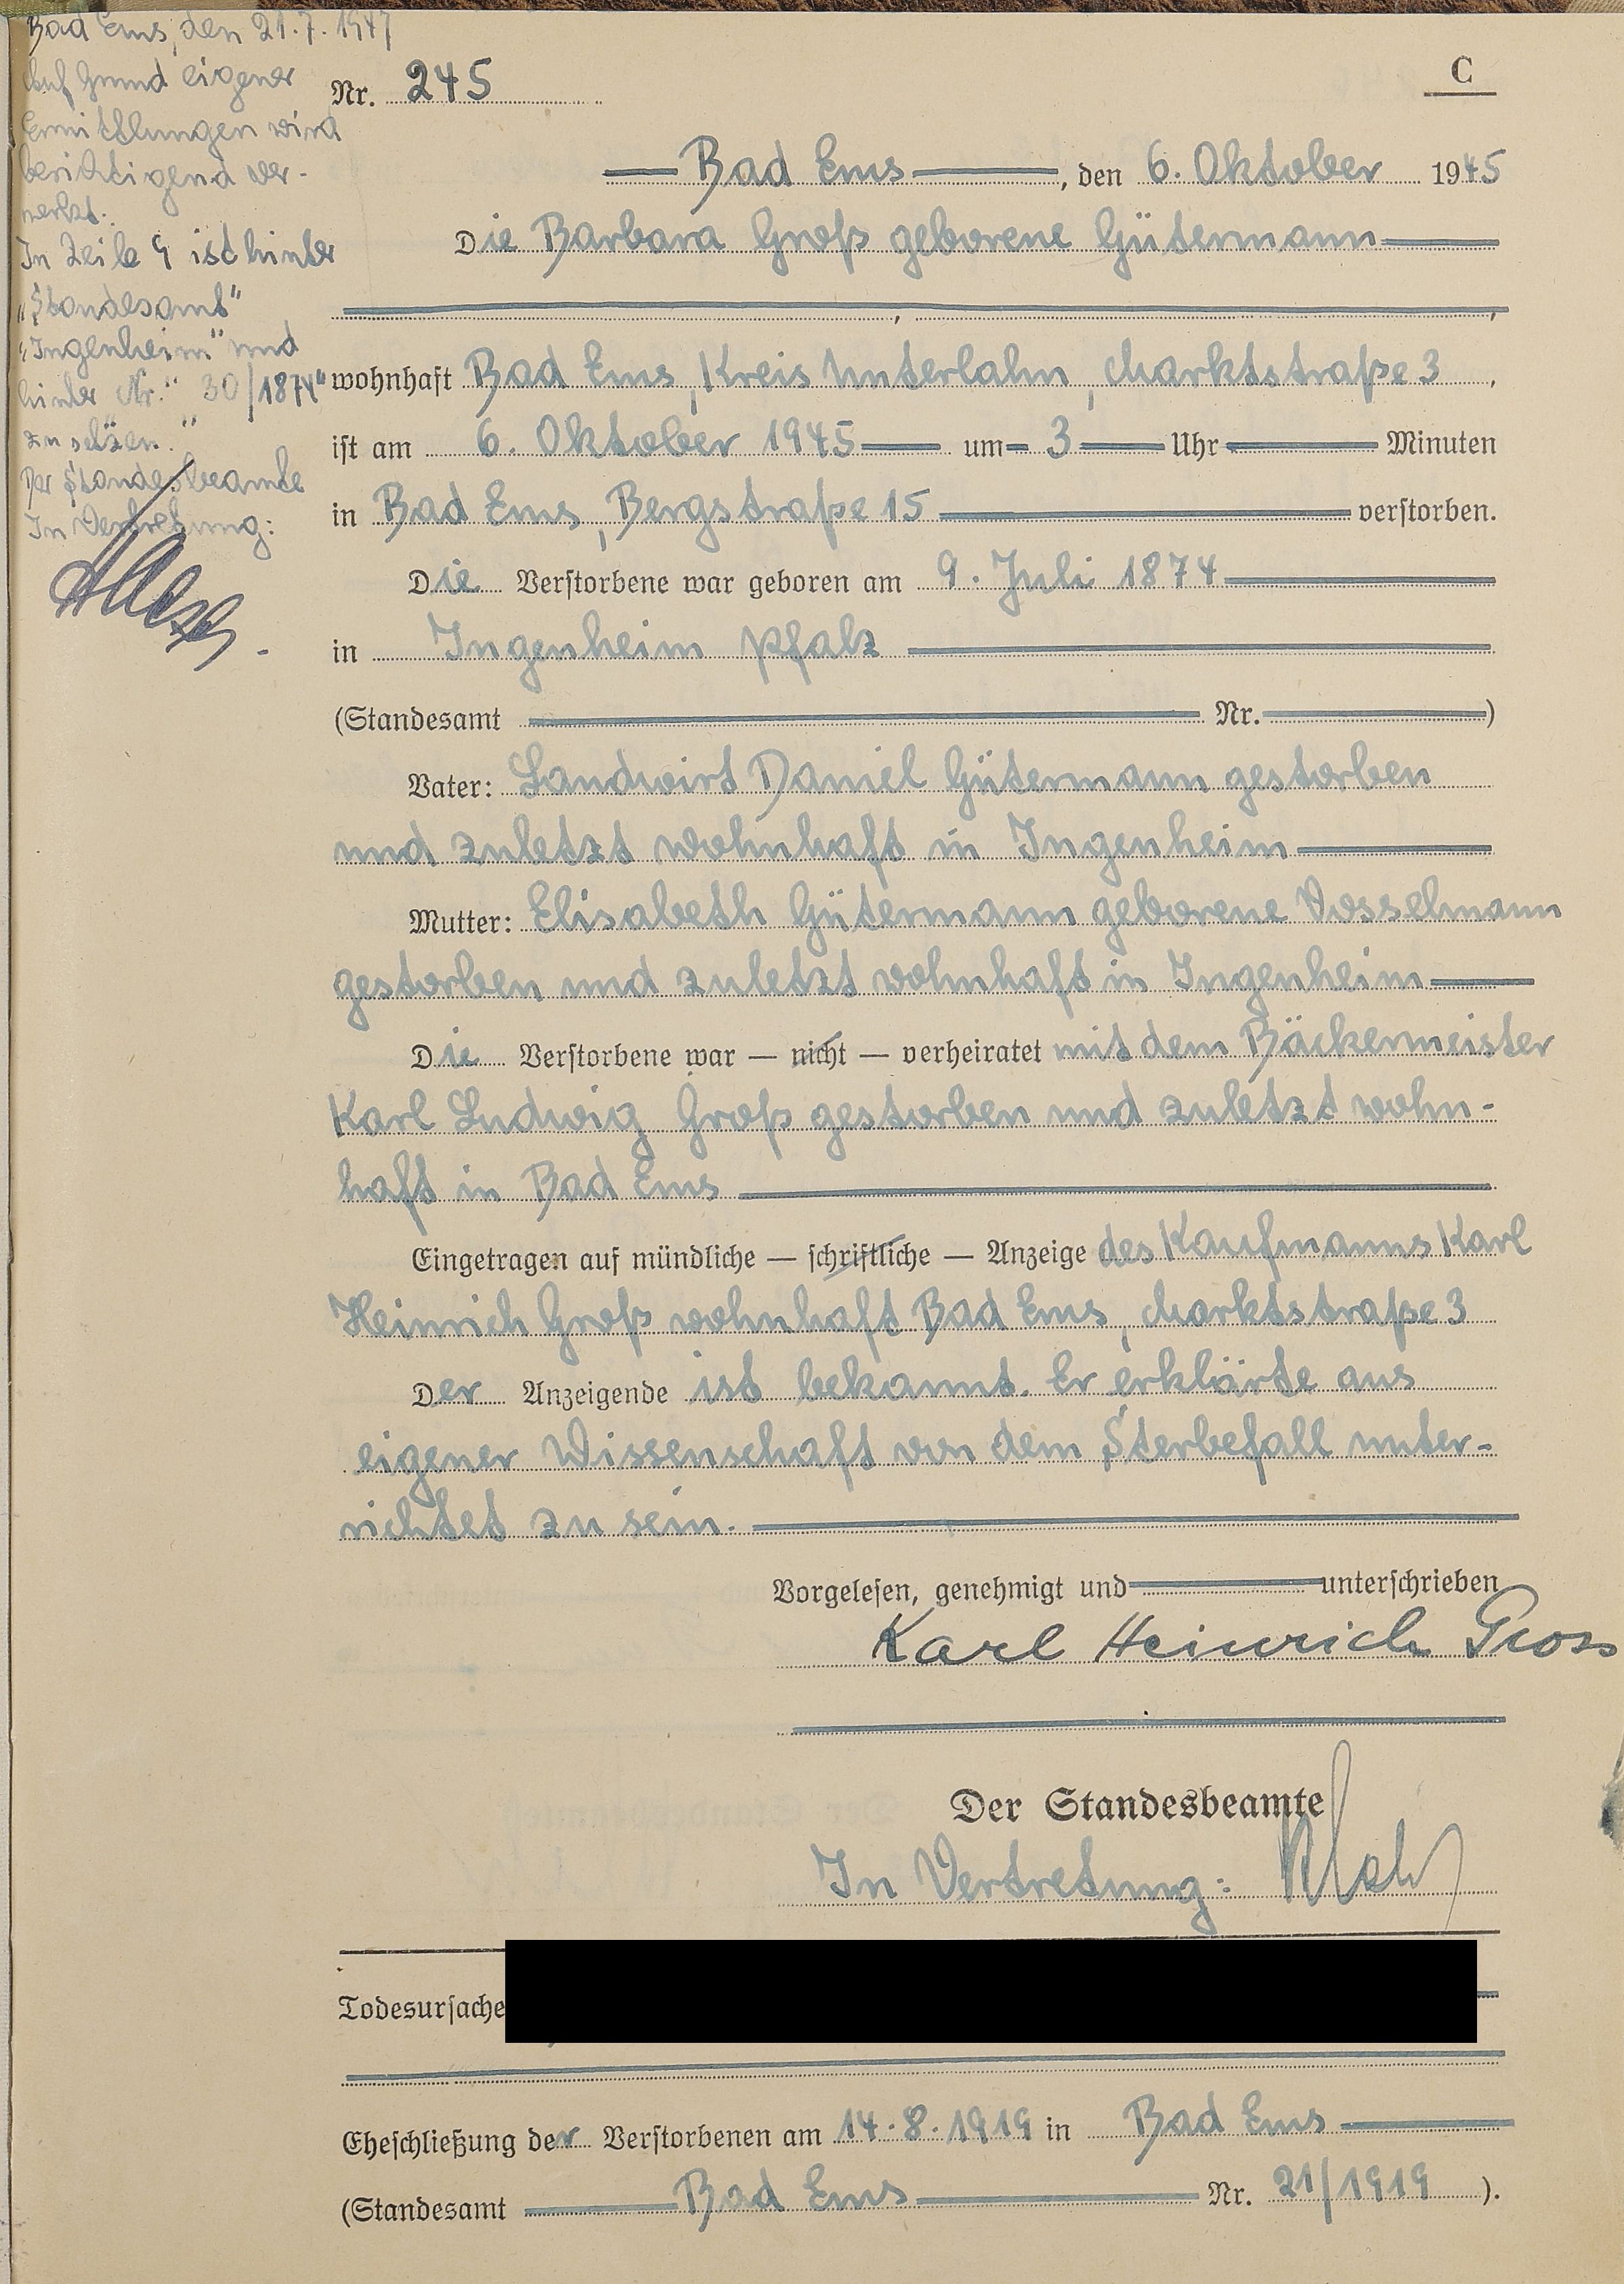 Bad Ems, den 21.7.1947
Auf Grund eigener
Ermittlungen wird
berichtigend ver-
merkt:
In Zeile 9 ist hinter
„Standesamt"
„Ingenheim" und
hinter „Nr." 30/1874"
zu setzen."
Der Standesbeamte
In Vertretung:
C
Nr. 245
Bad Ems, den 6. Oktober 1945
Die Barbara Groß geborene Gütermann
wohnhaft Bad Ems, Kreis Unterlahn, Marktstraße 3,
ist am 6. Oktober 1945 um 3 Uhr Minuten
in Bad Ems, Bergstraße 15 verstorben.
Die Verstorbene war geboren am 9. Juli 1874
in Ingenheim Pfalz
(Standesamt Nr. )
Vater: Landwirt Daniel Gütermann gestorben
und zuletzt wohnhaft in Ingenheim
Mutter: Elisabeth Gütermann geborene Vosselmann
gestorben und zuletzt wohnhaft in Ingenheim
Die Verstorbene war — nicht — verheiratet mit dem Bäckermeister
Karl Ludwig Groß gestorben und zuletzt wohn-
haft in Bad Ems
Eingetragen auf mündliche — schriftliche — Anzeige des Kaufmanns Karl
Heinrich Groß wohnhaft Bad Ems, Marktstraße 3
Der Anzeigende ist bekannt. Er erklärte aus
eigener Wissenschaft von dem Sterbefall unter-
richtet zu sein.
Vorgelesen, genehmigt und unterschrieben
Karl Heinrich Gross
Der Standesbeamte
In Vertretung:
Todesursache
Eheschließung der Verstorbenen am 14.8.1919 in Bad Ems
(Standesamt Bad Ems Nr. 21/1919 ).